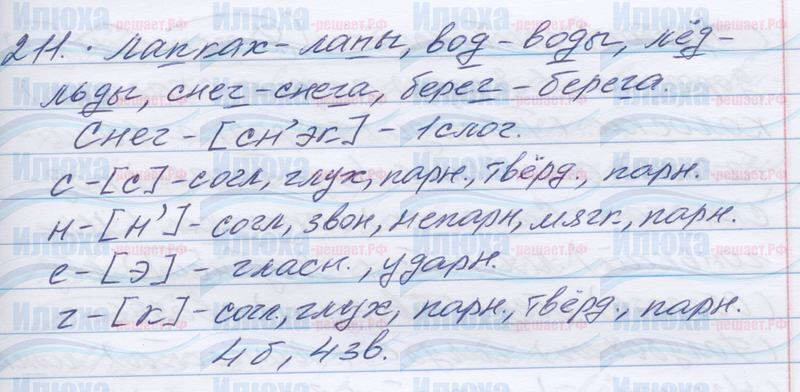 211. · Лапках - лапы, вод - воды, лёд -
льды, снег - снега, берег - берега.
Снег - [сн'эк] - 1 слог.
с - [с] - согл, глух, парн., твёрд., парн.
н - [н'] - согл, звон, непарн, мягк., парн.
е - [э] - гласн., ударн.
г - [к] - согл, глух, парн., твёрд, парн.
4 б, 4 зв.
Илюха-решает.рф